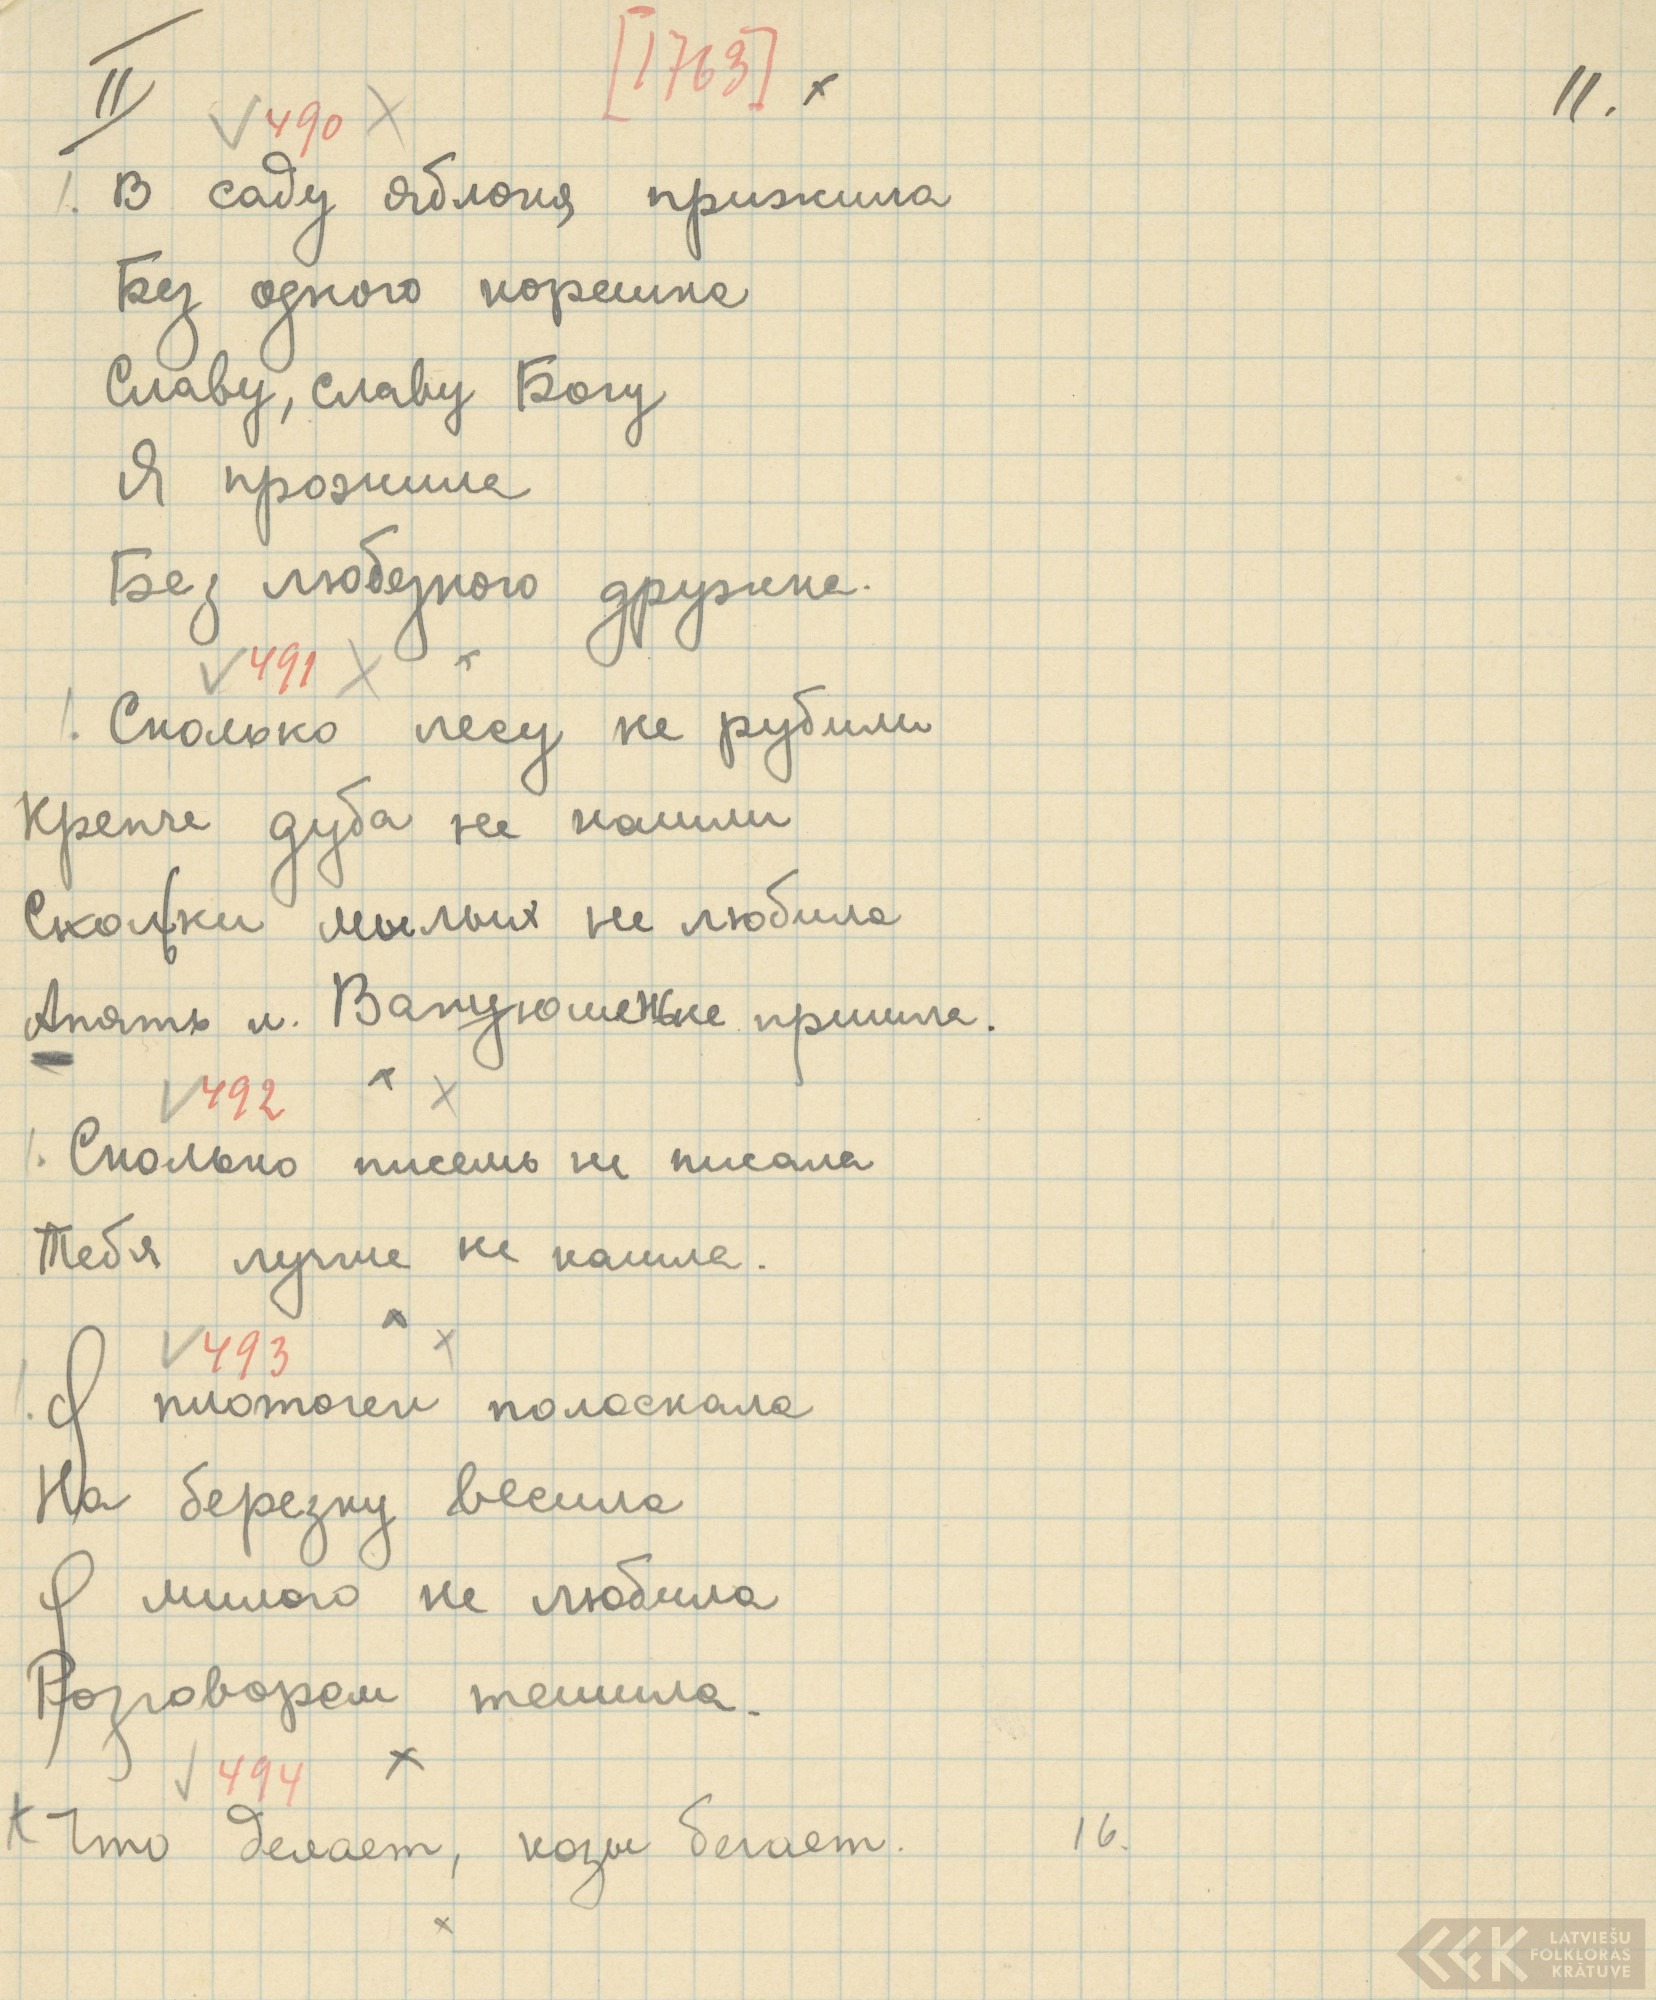 II [1763] x 11.
√ 490 x
1. В саду яблоня прижила
Без одного корешка
Славу, славу Богу
Я прожила
Без любезного дружка.
√ 491 x x
1. Сколько лесу не рубили
Крепче дуба не нашли
Сколько милых не любила
Апять к Ванюшеньке пришла.
√ 492 x x
1. Сколько писемь не писала
Тебя лучше не нашла.
√ 493 x x
1. Я платочек полоскала
На березку весила
Я милого не любила
Розговорам тешила.
√ 494 x
Что делает, козы бегает. 16.
x
LATVIEŠU
FOLKLORAS
KRĀTUVE